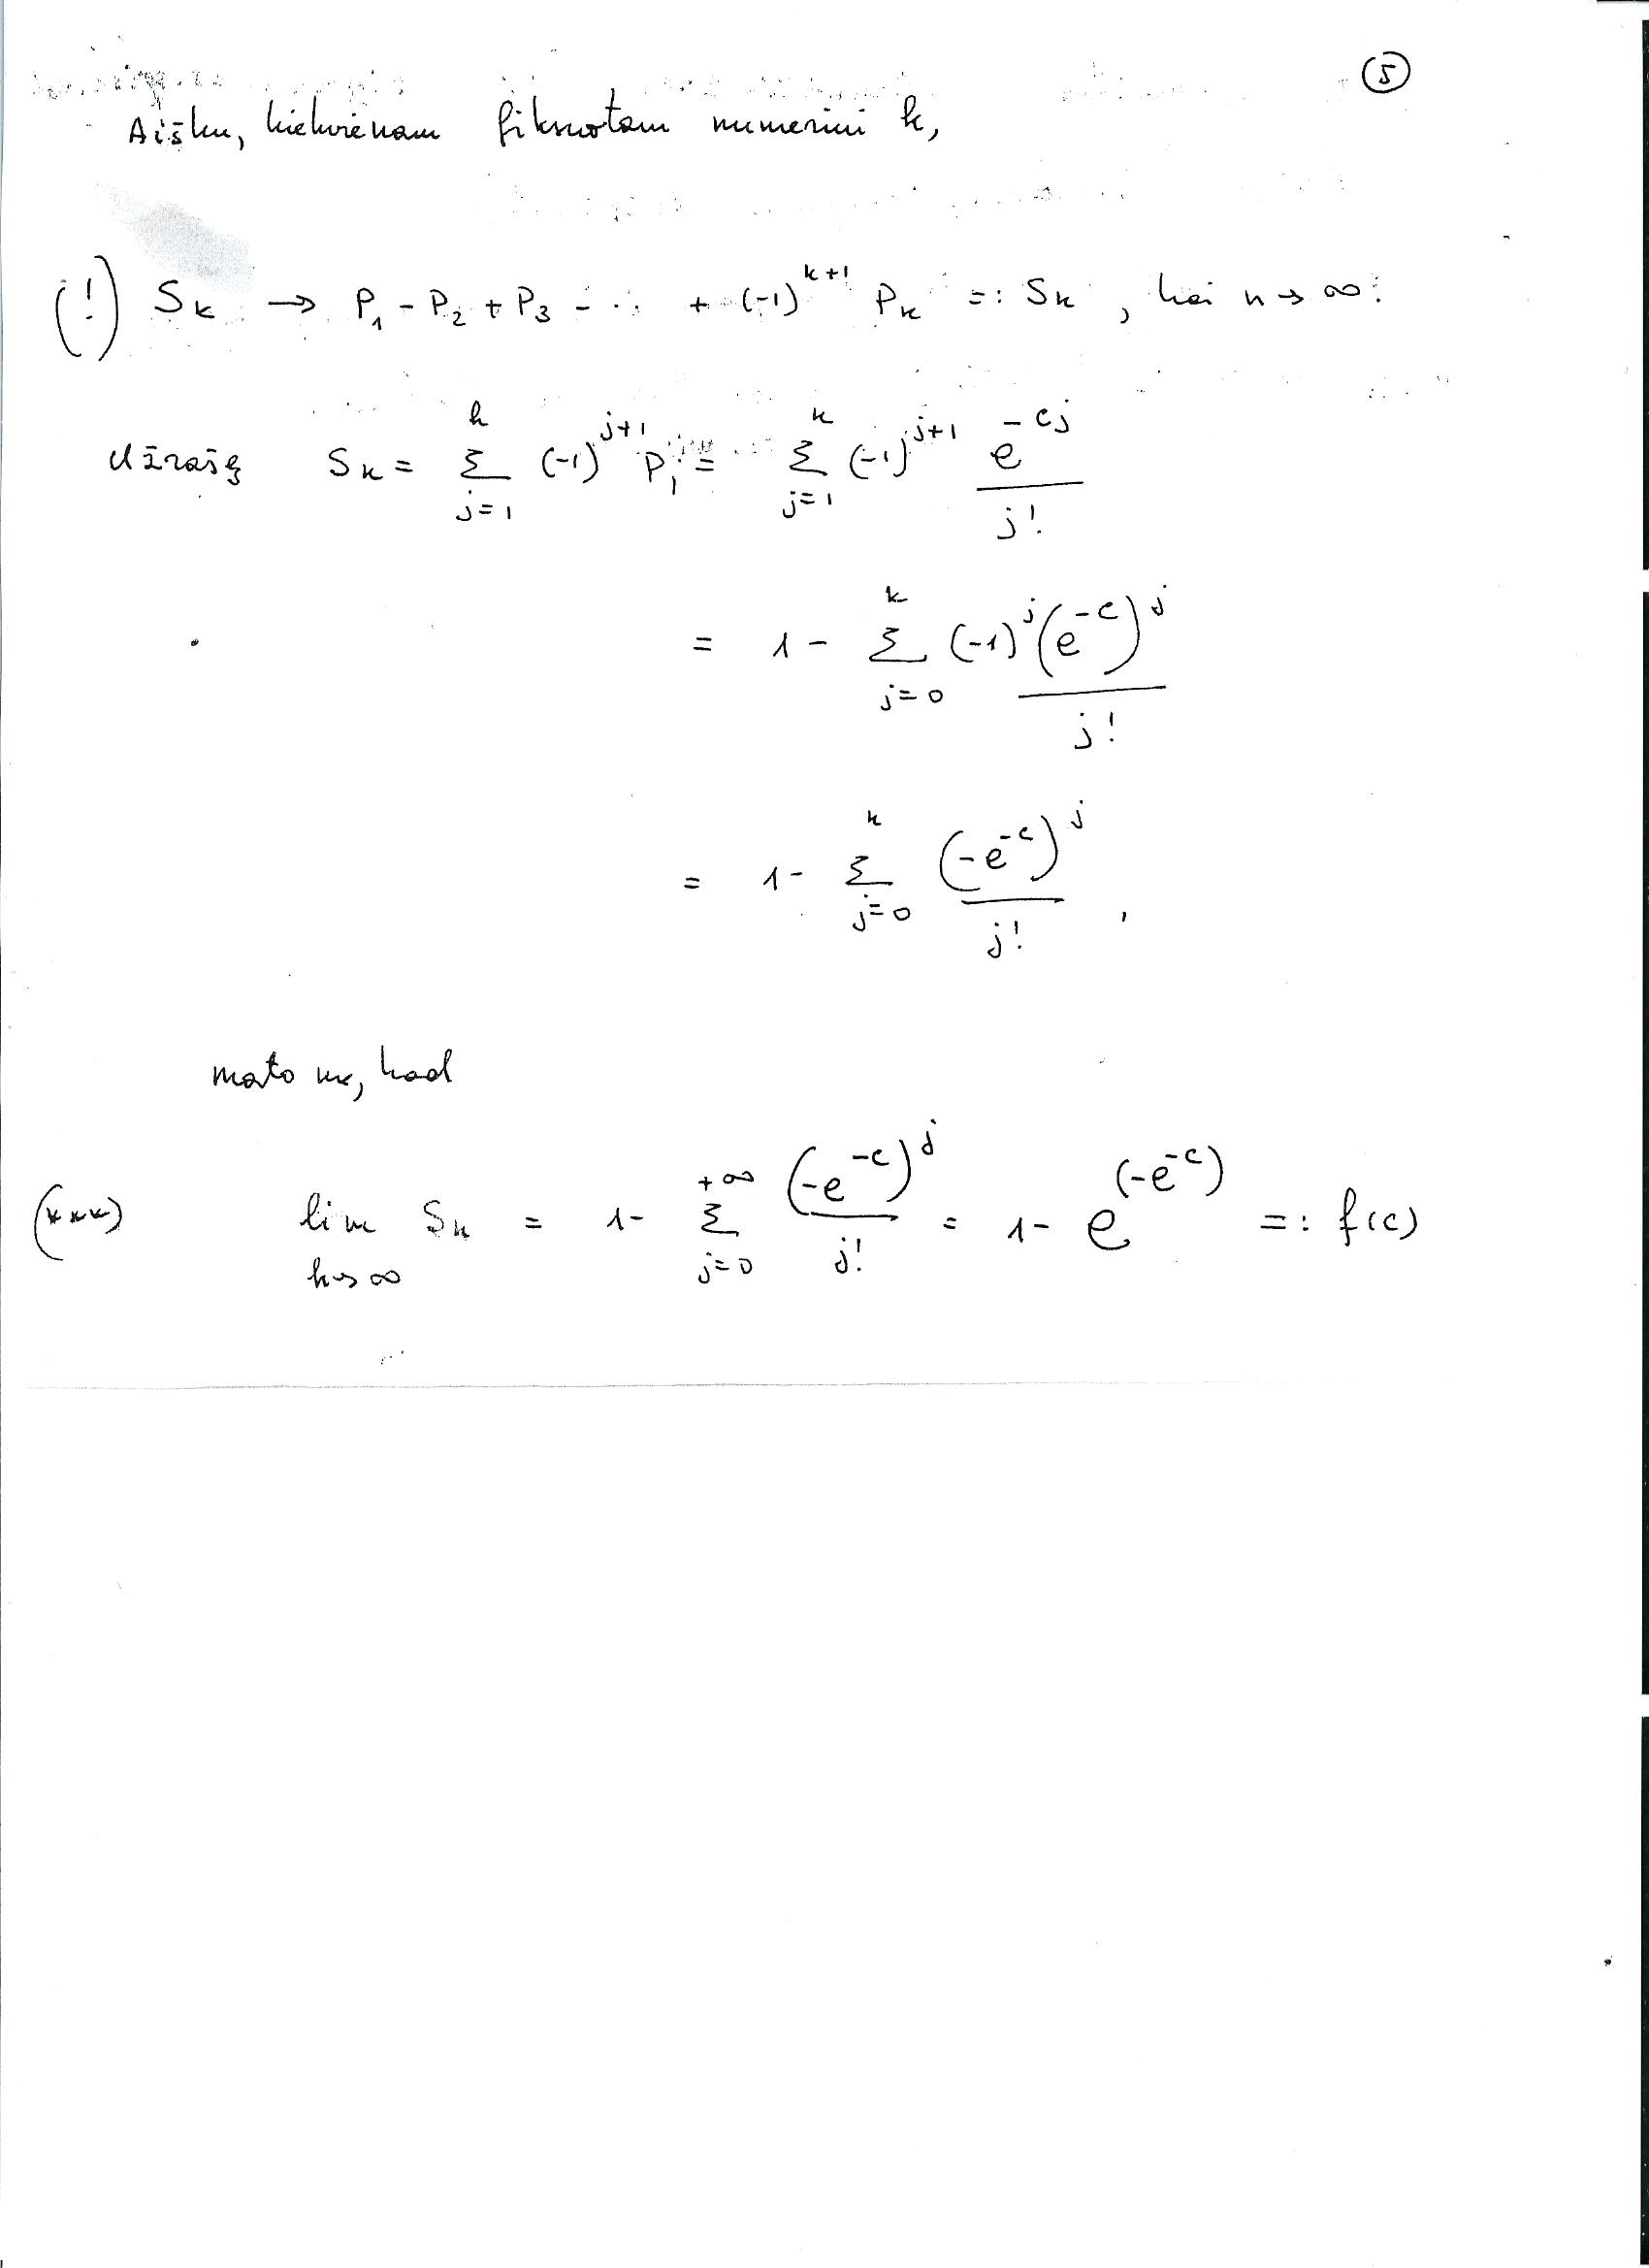 ⑤
Aišku, kiekvienam fiksuotam numeriui k,
(!) S_k → P_1 - P_2 + P_3 - ... + (-1)^{k+1} P_k =: S_k, kai n → ∞.
Užrašę S_k = Σ_{j=1}^{k} (-1)^{j+1} P_j = Σ_{j=1}^{k} (-1)^{j+1} \frac{e^{-cj}}{j!}
= 1 - Σ_{j=0}^{k} (-1)^j \frac{(e^{-c})^j}{j!}
= 1 - Σ_{j=0}^{k} \frac{(-e^{-c})^j}{j!},
matome, kad
(***) lim_{k→∞} S_k = 1 - Σ_{j=0}^{+∞} \frac{(-e^{-c})^j}{j!} = 1 - e^{(-e^{-c})} =: f(c)